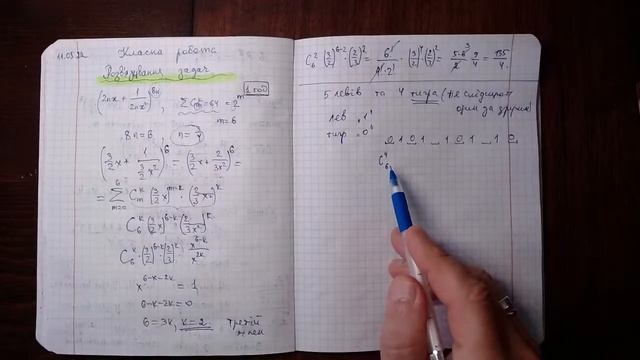 11.05.22 Класна робота
Розв'язування задач
(2nx + 1/(2nx²))^(8n), ΣC = 64 = 2^m 1 год
m = 6
8n = 6, n = 3/4
(3/2 x + 1/(3/2 x²))^6 = (3/2 x + 2/(3x²))^6 =
= Σ C_m^k (3/2 x)^(m-k) · (2/3 x²)^k
C_6^k (3/2 x)^(6-k) · (2/(3x²))^k
C_6^k · (3/2)^(6-k) · (2/3)^k · x^(6-k)/x^(2k)
x^(6-k-2k) = 1
6-k-2k = 0
6 = 3k, k = 2 третій член
C_6^2 (3/2)^(6-2) · (2/3)^2 = 6!/(4!·2!) · (3/2)^4 (2/3)^2 = 5·6/2 · 9/4 = 135/4.
5 левів та 4 тигра (не слідують один за другим)
лев „1"
тигр „0"
0 1 0 1 _ 1 0 1 _ 1 0
C_6^4